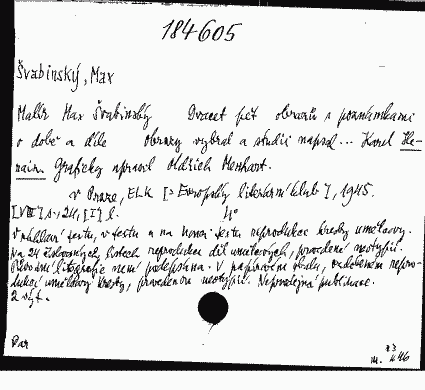 184605
Švabinský, Max
Malíř Max Švabinský Dvacet pět obrazů s poznámkami
o době a díle Obrazy vybral a studii napsal ... Karel He-
nain. Graficky upravil Oldřich Menhart.
V Praze, ELK [= Evropský literární klub], 1945.
[VIII] s., 24, [I] l. 4°
V záhlaví textu, v textu a na konci textu reprodukce kresby umělcovy.
Na 24 číslovaných listech reprodukce děl umělcových, provedené neotypií.
Původní litografie není podepsána. V papírovém obalu, ozdobeném repro-
dukcí umělcovy kresby, provedenou neotypií. Neprodejná publikace.
2 výt.
Par
m. 446